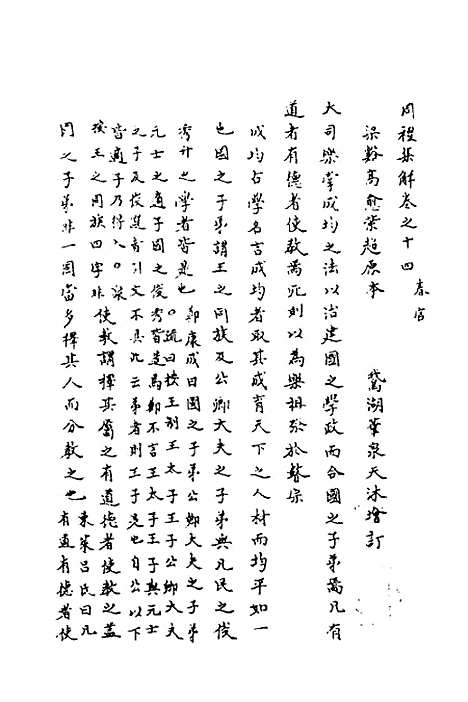 周禮集解卷之十四 春官
梁谿高愈紫超原本 鵞湖華泉天沐增訂
大司樂掌成均之法以治建國之學政而合國之子弟焉凡有
道者有德者使教焉死則以為樂祖祭於瞽宗
成均古學名言成均者取其成育天下之人材而均平如一
也國之子弟謂王之同族及公卿大夫之子弟與凡民之俊
秀升之學者皆是也
鄭康成曰國之子弟公卿大夫之子弟
〇疏曰按王制王太子王子公卿大夫
元士之適子國之俊秀皆造焉鄭不言王太子王子與元士
之子及俊選者引文不具
云弟者則王子是也自公以下
皆適子乃得入〇
按王之同族四字非
使教謂擇其屬之有道德者使教之蓋
國之子弟非一國當多擇其人而分教之也
東萊呂氏曰凡
有道有德者使